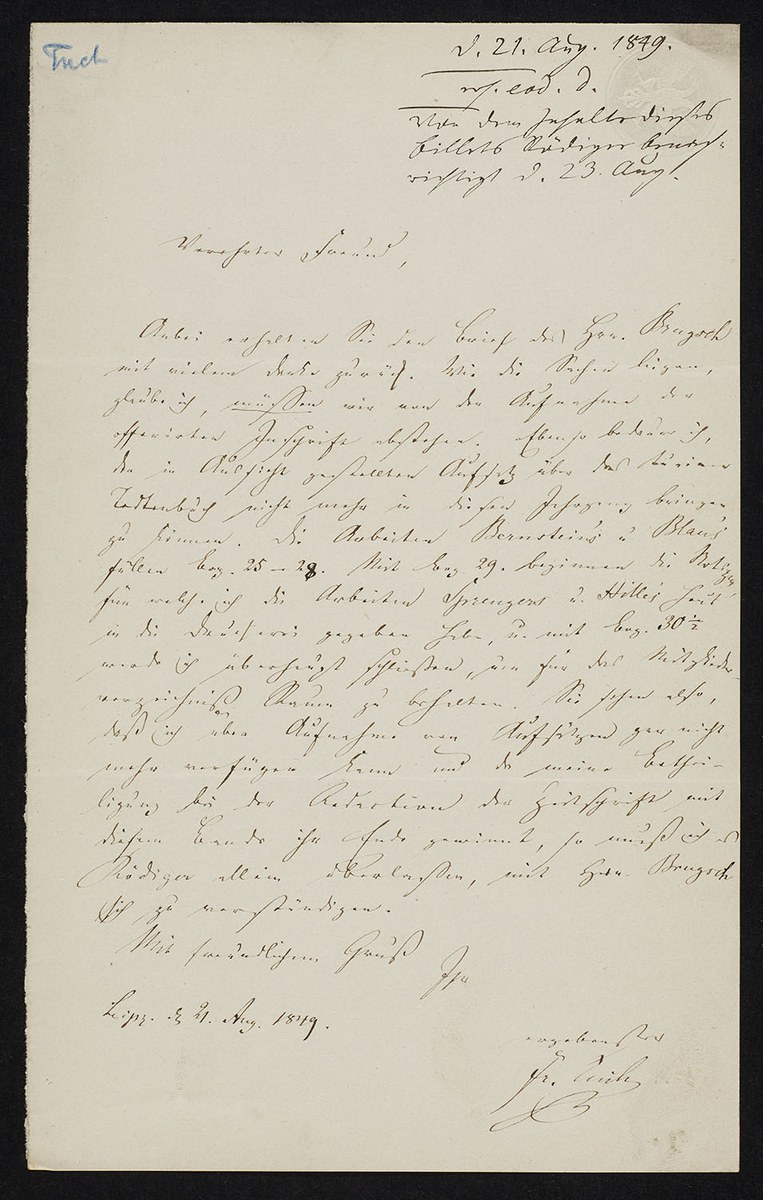 Tuch
d. 21. Aug. 1849.
eod. d.
Von dem Inhalte dieses
Billets Rödiger benach-
richtigt d. 23. Aug.
Verehrter Freund,
Anbei erhalten Sie den Brief des Hrn. Brugsch
mit vielem Danke zurück. Wie die Sachen liegen,
glaube ich, müssen wir von der Aufnahme der
offerirten Inschrift abstehen. Ebenso bedaure ich,
den in Aussicht gestellten Aufsatz über das Turiner
Todtenbuch nicht mehr in diesen Jahrgang bringen
zu können. Die Arbeiten Bernstein's u. Blau's
füllen Bog. 25 – 28. Mit Bog. 29. beginnen die Notizen,
für welche ich die Arbeiten Sprengers u. Hölle's heut
in die Druckerei gegeben habe, u. mit Bog. 30½
werde ich überhaupt schließen, um für das Mitglieder-
verzeichniß Raum zu behalten. Sie sehen also,
daß ich über Aufnahme von Aufsätzen gar nicht
mehr verfügen kann und da meine Bethei-
ligung bei der Redaction der Zeitschrift mit
diesem Bande ihr Ende gewinnt, so muß ich es
Rödiger allein überlassen, mit Hrn. Brugsch
sich zu verständigen.
Mit freundlichem Gruß
Ihr
Leipz. d. 21. Aug. 1849.
ergebenster
Fr. Tuch